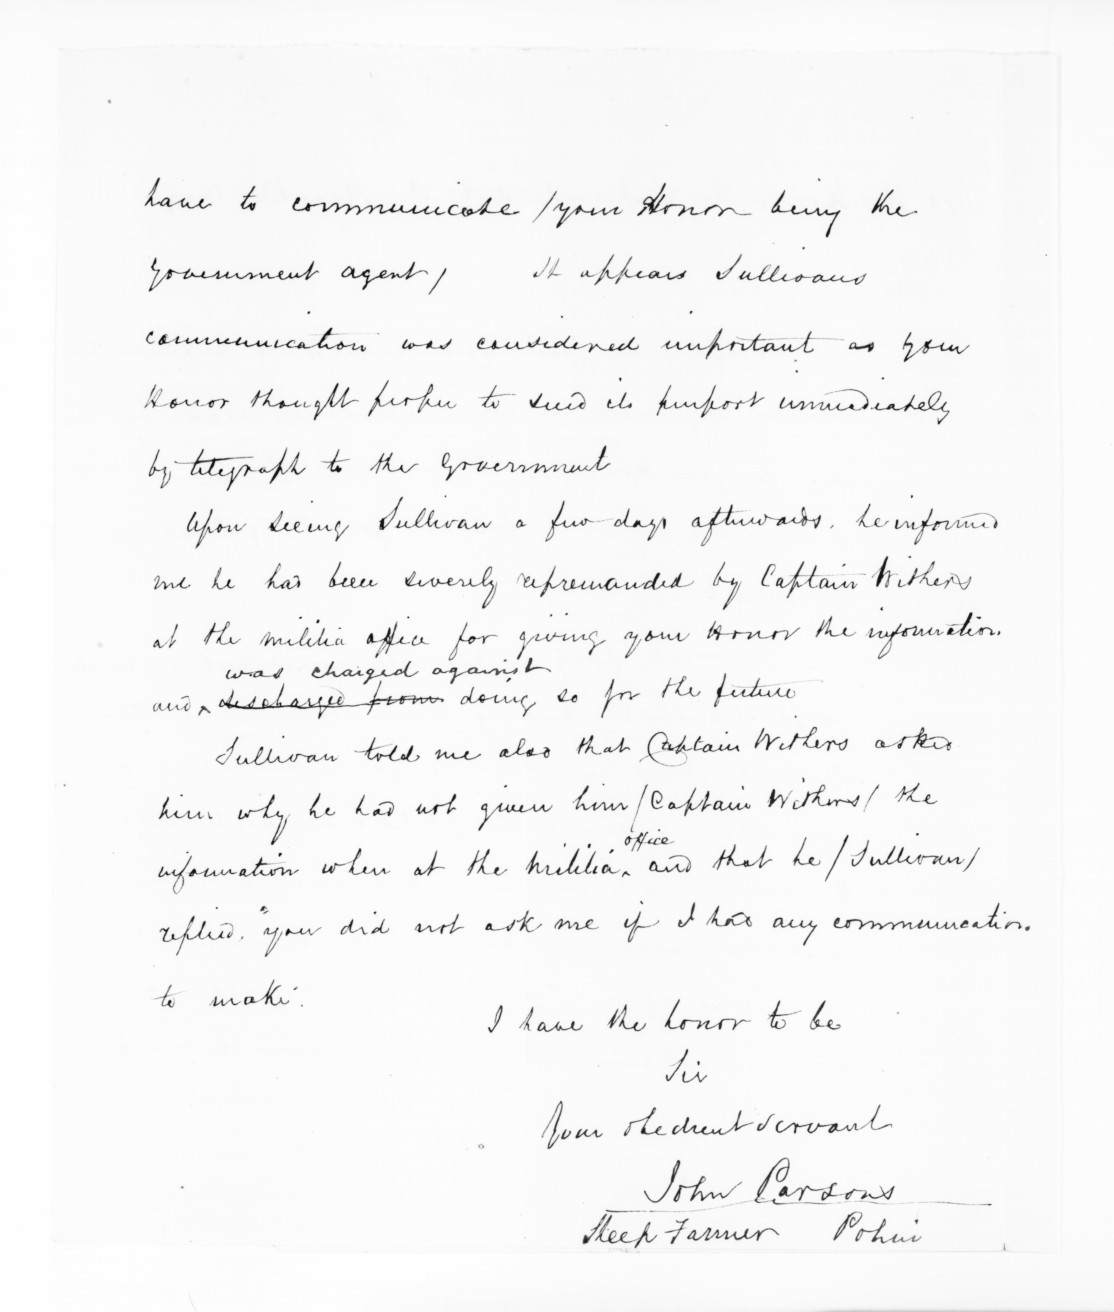 have to communicate /your Honor being the
Government agent/ It appears Sullivans
communication was considered important as your
Honor thought proper to send its purport immediately
by telegraph to the Government
Upon seeing Sullivan a few days afterwards, he informed
me he had been severely repremanded by Captain Withers
at the militia office for giving your Honor the information
was charged against
and discharged from doing so for the future
Sullivan told me also that Captain Withers asked
him why he had not given him /Captain Withers/ the
office
information when at the Militia and that he /Sullivan/
replied, "you did not ask me if I had any communication
to make.
I have the honor to be
Sir
Your obedient servant
John Parsons
Sheep Farmer Pohui